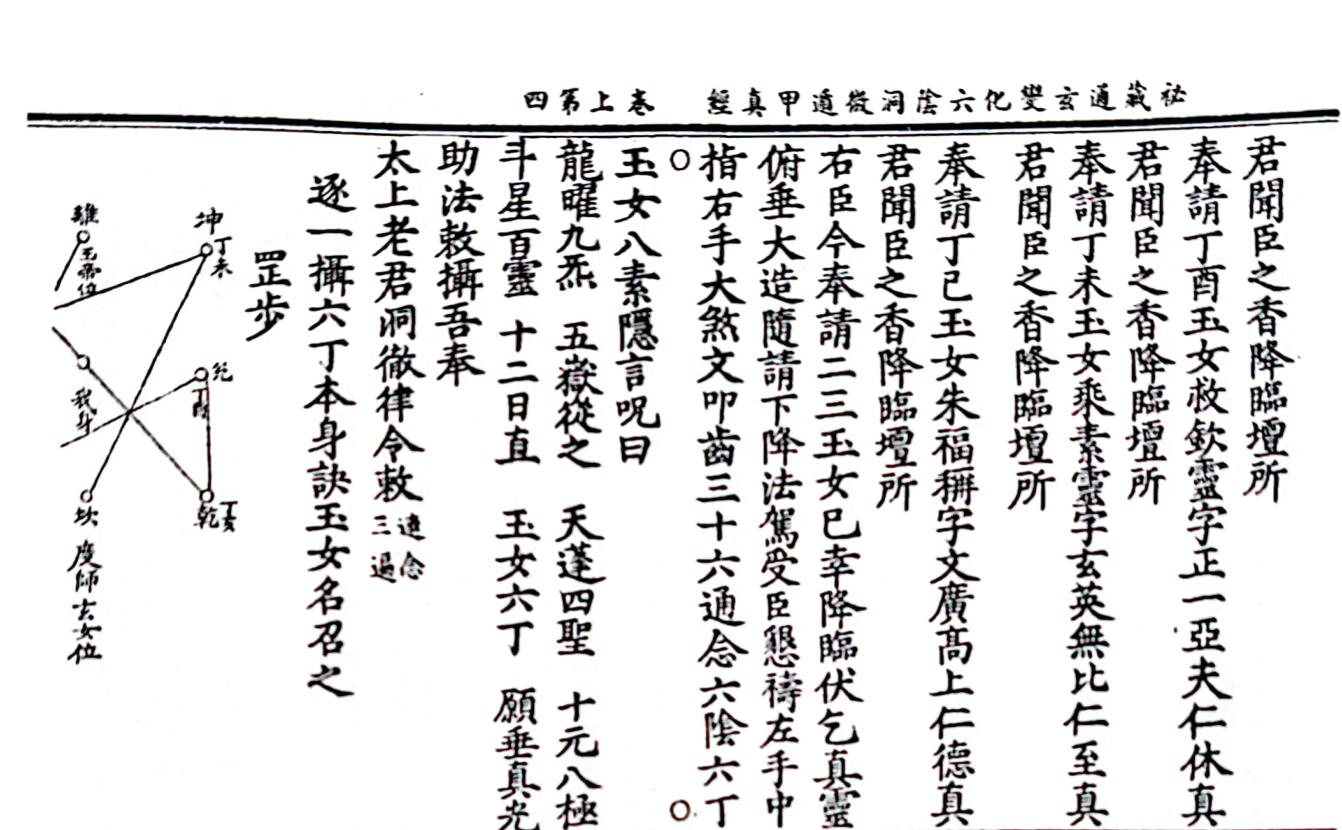 祕藏通玄變化六陰洞微遁甲真經 卷上第四
君聞臣之香降臨壇所
奉請丁酉玉女救欽靈字正一亞夫仁休真
君聞臣之香降臨壇所
奉請丁未玉女乘素靈字玄英無比仁至真
君聞臣之香降臨壇所
奉請丁巳玉女朱福稱字文廣高上仁德真
君聞臣之香降臨壇所
右臣今奉請二三玉女已幸降臨伏乞真靈
俯垂大造隨請下降法駕受臣懇禱左手中
指右手大煞文叩齒三十六通念六陰六丁
○ ○
玉女八素隱言呪曰
龍曜九炁 五嶽從之 天蓬四聖 十元八極
斗星百靈 十二日直 玉女六丁 願垂真光
助法敕攝吾奉
太上老君洞徹律令敕 連念三過
逐一攝六丁本身訣玉女名召之
罡步
坤 丁未
丁酉
乾 丁亥
離 玉帝位
我身
坎 度師玄女位